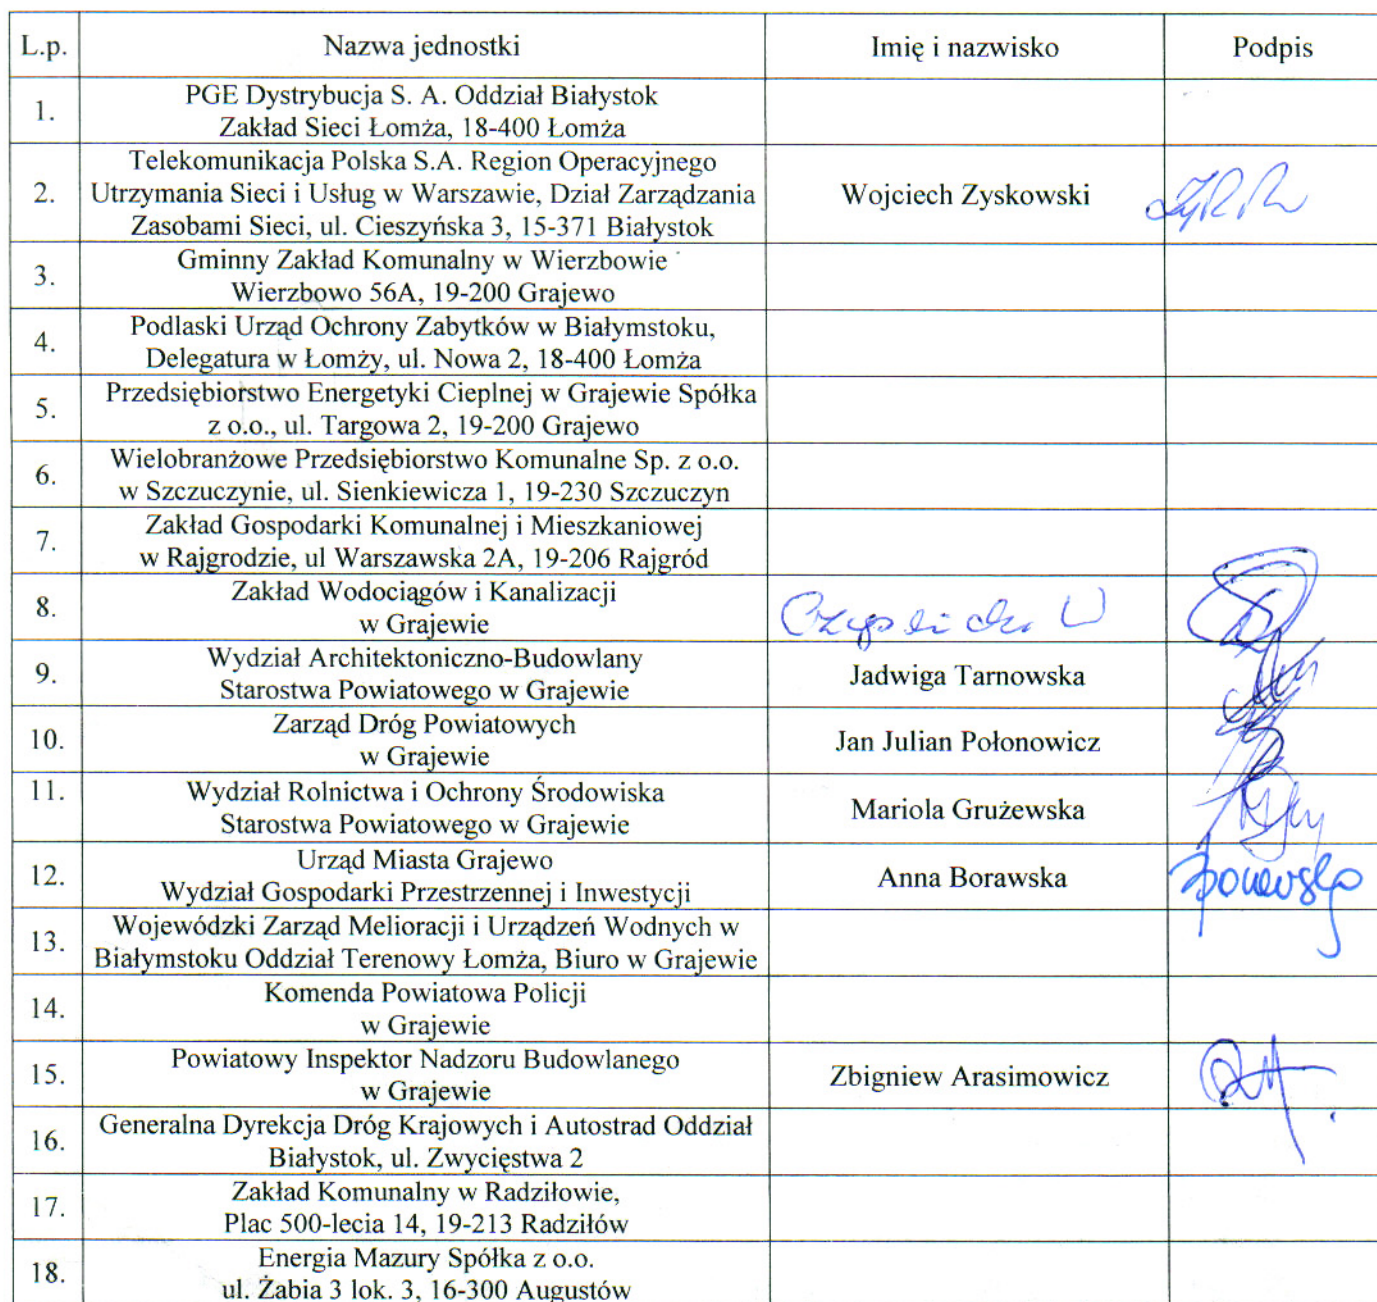 L.p. Nazwa jednostki Imię i nazwisko Podpis
1. PGE Dystrybucja S. A. Oddział Białystok
Zakład Sieci Łomża, 18-400 Łomża
Telekomunikacja Polska S.A. Region Operacyjnego
2. Utrzymania Sieci i Usług w Warszawie, Dział Zarządzania Wojciech Zyskowski
Zasobami Sieci, ul. Cieszyńska 3, 15-371 Białystok
3. Gminny Zakład Komunalny w Wierzbowie
Wierzbowo 56A, 19-200 Grajewo
4. Podlaski Urząd Ochrony Zabytków w Białymstoku,
Delegatura w Łomży, ul. Nowa 2, 18-400 Łomża
5. Przedsiębiorstwo Energetyki Cieplnej w Grajewie Spółka
z o.o., ul. Targowa 2, 19-200 Grajewo
6. Wielobranżowe Przedsiębiorstwo Komunalne Sp. z o.o.
w Szczuczynie, ul. Sienkiewicza 1, 19-230 Szczuczyn
7. Zakład Gospodarki Komunalnej i Mieszkaniowej
w Rajgrodzie, ul Warszawska 2A, 19-206 Rajgród
8. Zakład Wodociągów i Kanalizacji
w Grajewie
9. Wydział Architektoniczno-Budowlany Jadwiga Tarnowska
Starostwa Powiatowego w Grajewie
10. Zarząd Dróg Powiatowych Jan Julian Połonowicz
w Grajewie
11. Wydział Rolnictwa i Ochrony Środowiska Mariola Grużewska
Starostwa Powiatowego w Grajewie
12. Urząd Miasta Grajewo Anna Borawska
Wydział Gospodarki Przestrzennej i Inwestycji
13. Wojewódzki Zarząd Melioracji i Urządzeń Wodnych w
Białymstoku Oddział Terenowy Łomża, Biuro w Grajewie
14. Komenda Powiatowa Policji
w Grajewie
15. Powiatowy Inspektor Nadzoru Budowlanego Zbigniew Arasimowicz
w Grajewie
16. Generalna Dyrekcja Dróg Krajowych i Autostrad Oddział
Białystok, ul. Zwycięstwa 2
17. Zakład Komunalny w Radziłowie,
Plac 500-lecia 14, 19-213 Radziłów
18. Energia Mazury Spółka z o.o.
ul. Żabia 3 lok. 3, 16-300 Augustów